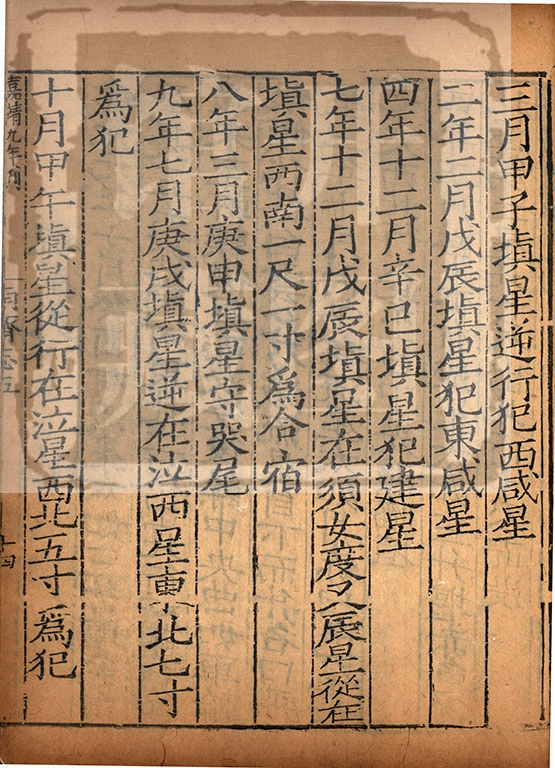 三月甲子塡星逆行犯西咸星
二年二月戊辰塡星犯東咸星
四年十二月辛巳塡星犯建星
七年十二月戊辰塡星在須女度又辰星從在
塡星西南一尺一寸爲合宿
八年三月庚申塡星守哭尾
九年七月庚戌塡星逆在泣西星東北七寸
爲犯
十月甲午塡星從行在泣星西北五寸爲犯
嘉靖九年刊
志五
十四